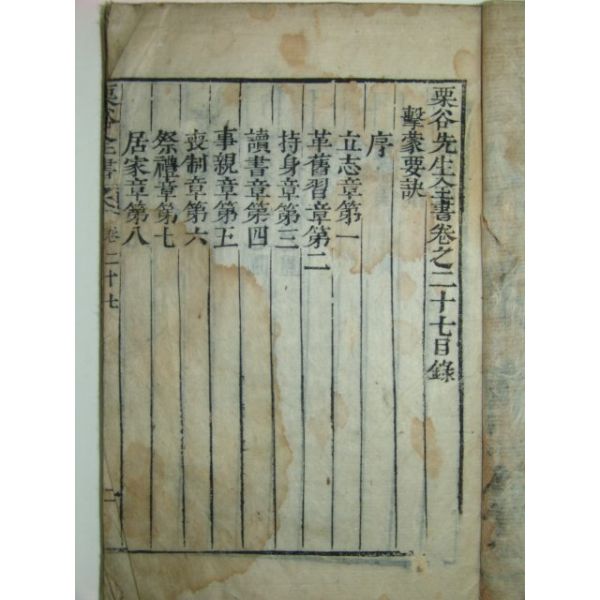 栗谷先生全書卷之二十七目錄
擊蒙要訣
序
立志章第一
革舊習章第二
持身章第三
讀書章第四
事親章第五
喪制章第六
祭禮章第七
居家章第八
栗谷全書 卷二十七
二